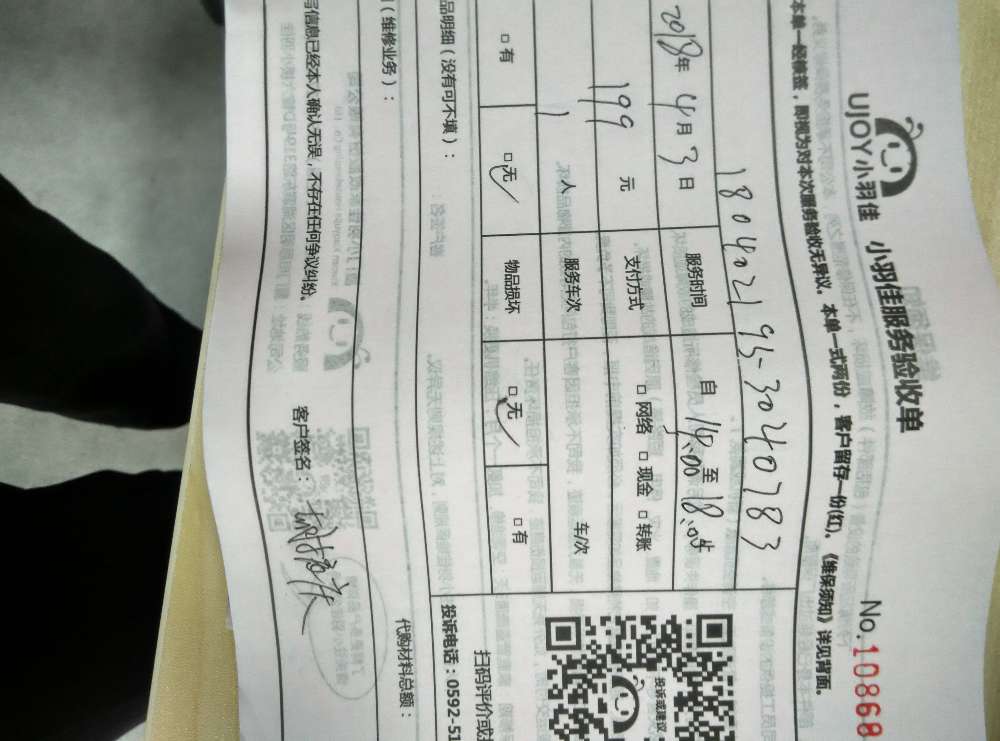 UJOY小羽佳 小羽佳服务验收单
No.10868
本单一经核签，即视为对本次服务验收无异议。本单一式两份，客户留存一份(红)。《维保须知》详见背面。
18040219S-3040783
2018年4月3日 服务时间 自14:00至18:05
199元 支付方式 □网络 □现金 □转账
1人 服务车次 车/次
□有 □无 物品损坏 □无 □有
品明细（没有可不填）：
投诉电话：0592-51
扫码评价或
投诉或建议
（维修业务）：
代购材料总额：
写信息已经本人确认无误，不存在任何争议纠纷。 客户签名：